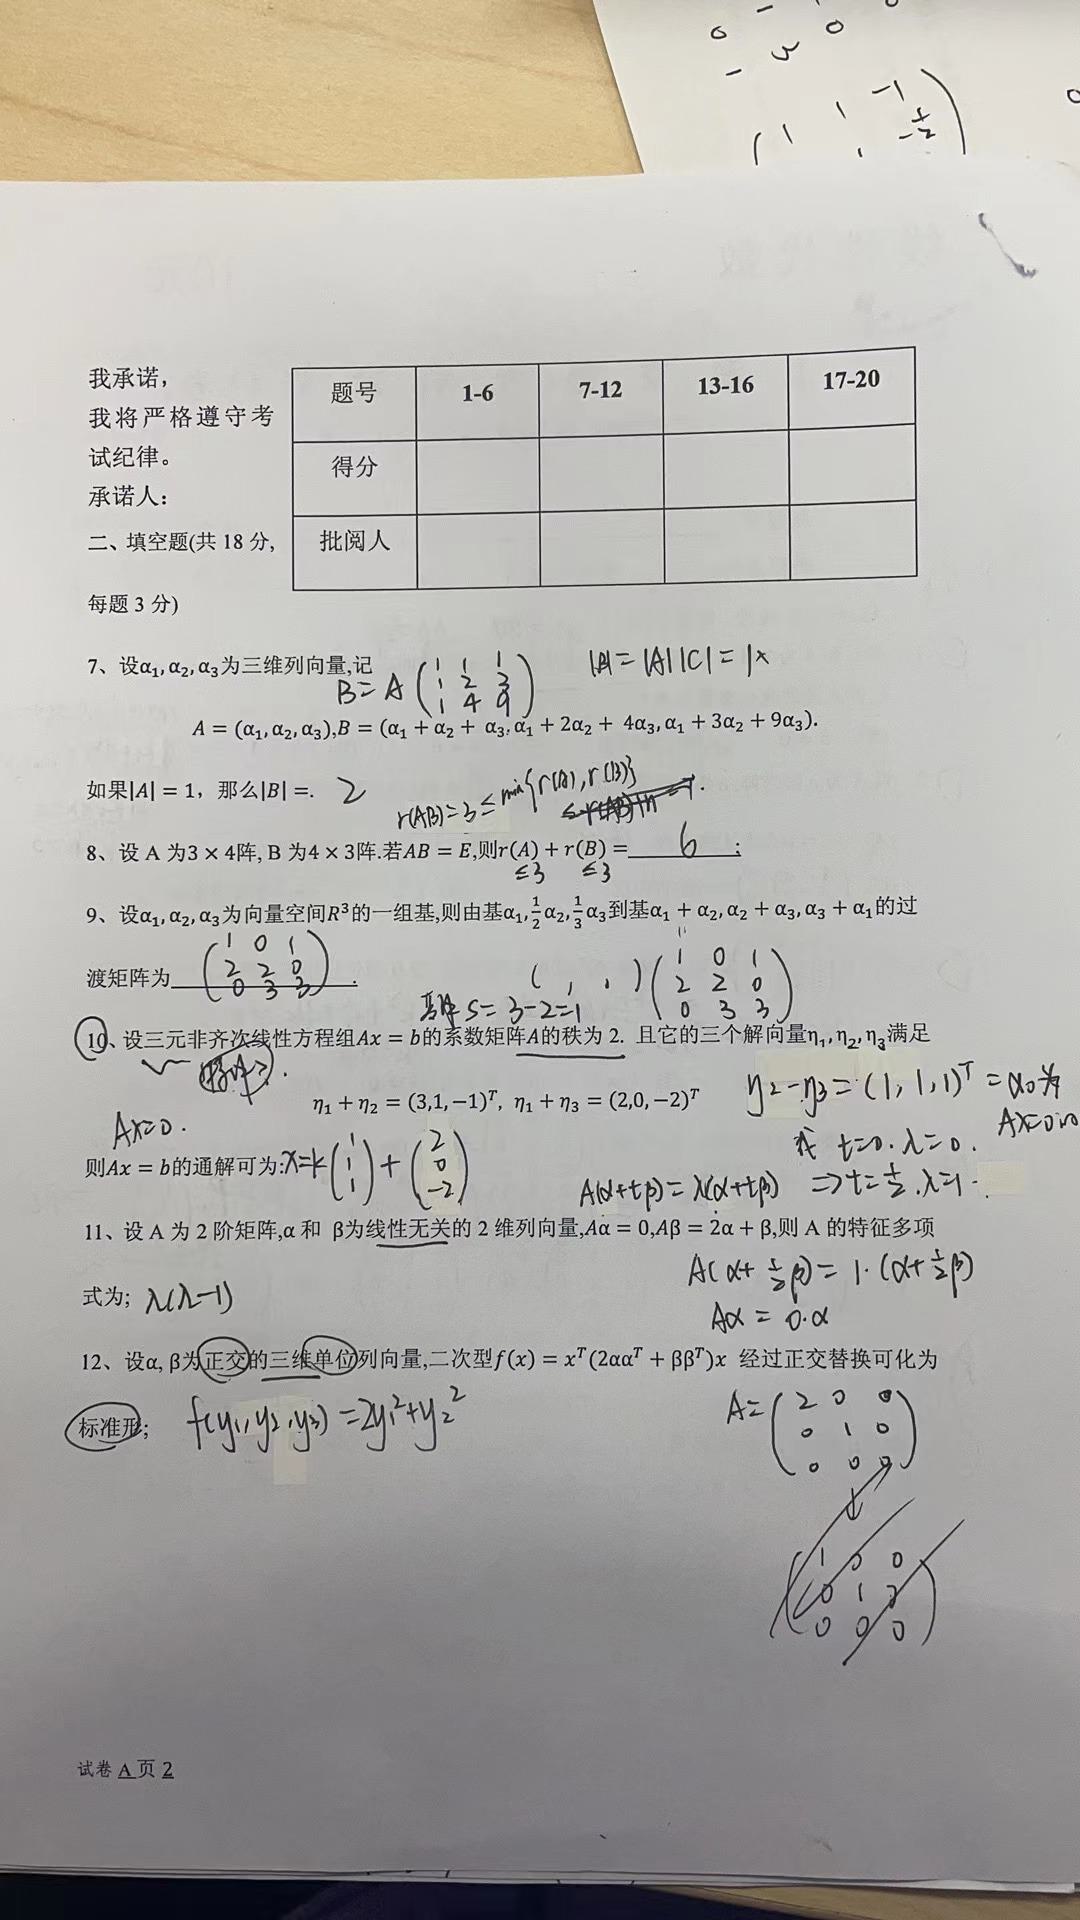 0 3 0
1
1 1 -1
我承诺，
我将严格遵守考
试纪律。
承诺人：
题号 1-6 7-12 13-16 17-20
得分
批阅人
二、填空题(共 18 分,
每题 3 分)
7、设α₁, α₂, α₃为三维列向量,记
B = A (1 1 1
1 2 3
1 4 9)
= |A||C| = 1×
A = (α₁, α₂, α₃),B = (α₁ + α₂ + α₃, α₁ + 2α₂ + 4α₃, α₁ + 3α₂ + 9α₃).
如果|A| = 1，那么|B| =. 2
r(AB)=3 ≤ min{r(A), r(B)}
8、设 A 为3 × 4阵, B 为4 × 3阵.若AB = E,则r(A) + r(B) = 6 ;
≤3 ≤3
9、设α₁, α₂, α₃为向量空间R³的一组基,则由基α₁, ½α₂, ⅓α₃到基α₁ + α₂, α₂ + α₃, α₃ + α₁的过
渡矩阵为 (1 0 1
2 2 0
0 3 3) .
( , , ) (1 0 1
2 2 0
0 3 3)
S = 3-2=1
10、设三元非齐次线性方程组Ax = b的系数矩阵A的秩为 2. 且它的三个解向量η₁, η₂, η₃满足
η₁ + η₂ = (3,1, −1)ᵀ, η₁ + η₃ = (2,0, −2)ᵀ
η₂-η₃ = (1, 1, 1)ᵀ = α₀为
Ax=0
Ax=0.
则Ax = b的通解可为: x = k (1
1
1) + (2
0
-2)
t=0. λ=0.
A(α+tβ) = λ(α+tβ) ⇒ t=½. λ=1.
11、设 A 为 2 阶矩阵,α 和 β为线性无关的 2 维列向量,Aα = 0,Aβ = 2α + β,则 A 的特征多项
式为; λ(λ-1)
A(α+½β) = 1·(α+½β)
Aα = 0·α
12、设α, β为正交的三维单位列向量,二次型f(x) = xᵀ(2ααᵀ + ββᵀ)x 经过正交替换可化为
标准形; f(y₁, y₂, y₃) = 2y₁²+y₂²
A = (2 0 0
0 1 0
0 0 0)
试卷 A 页 2